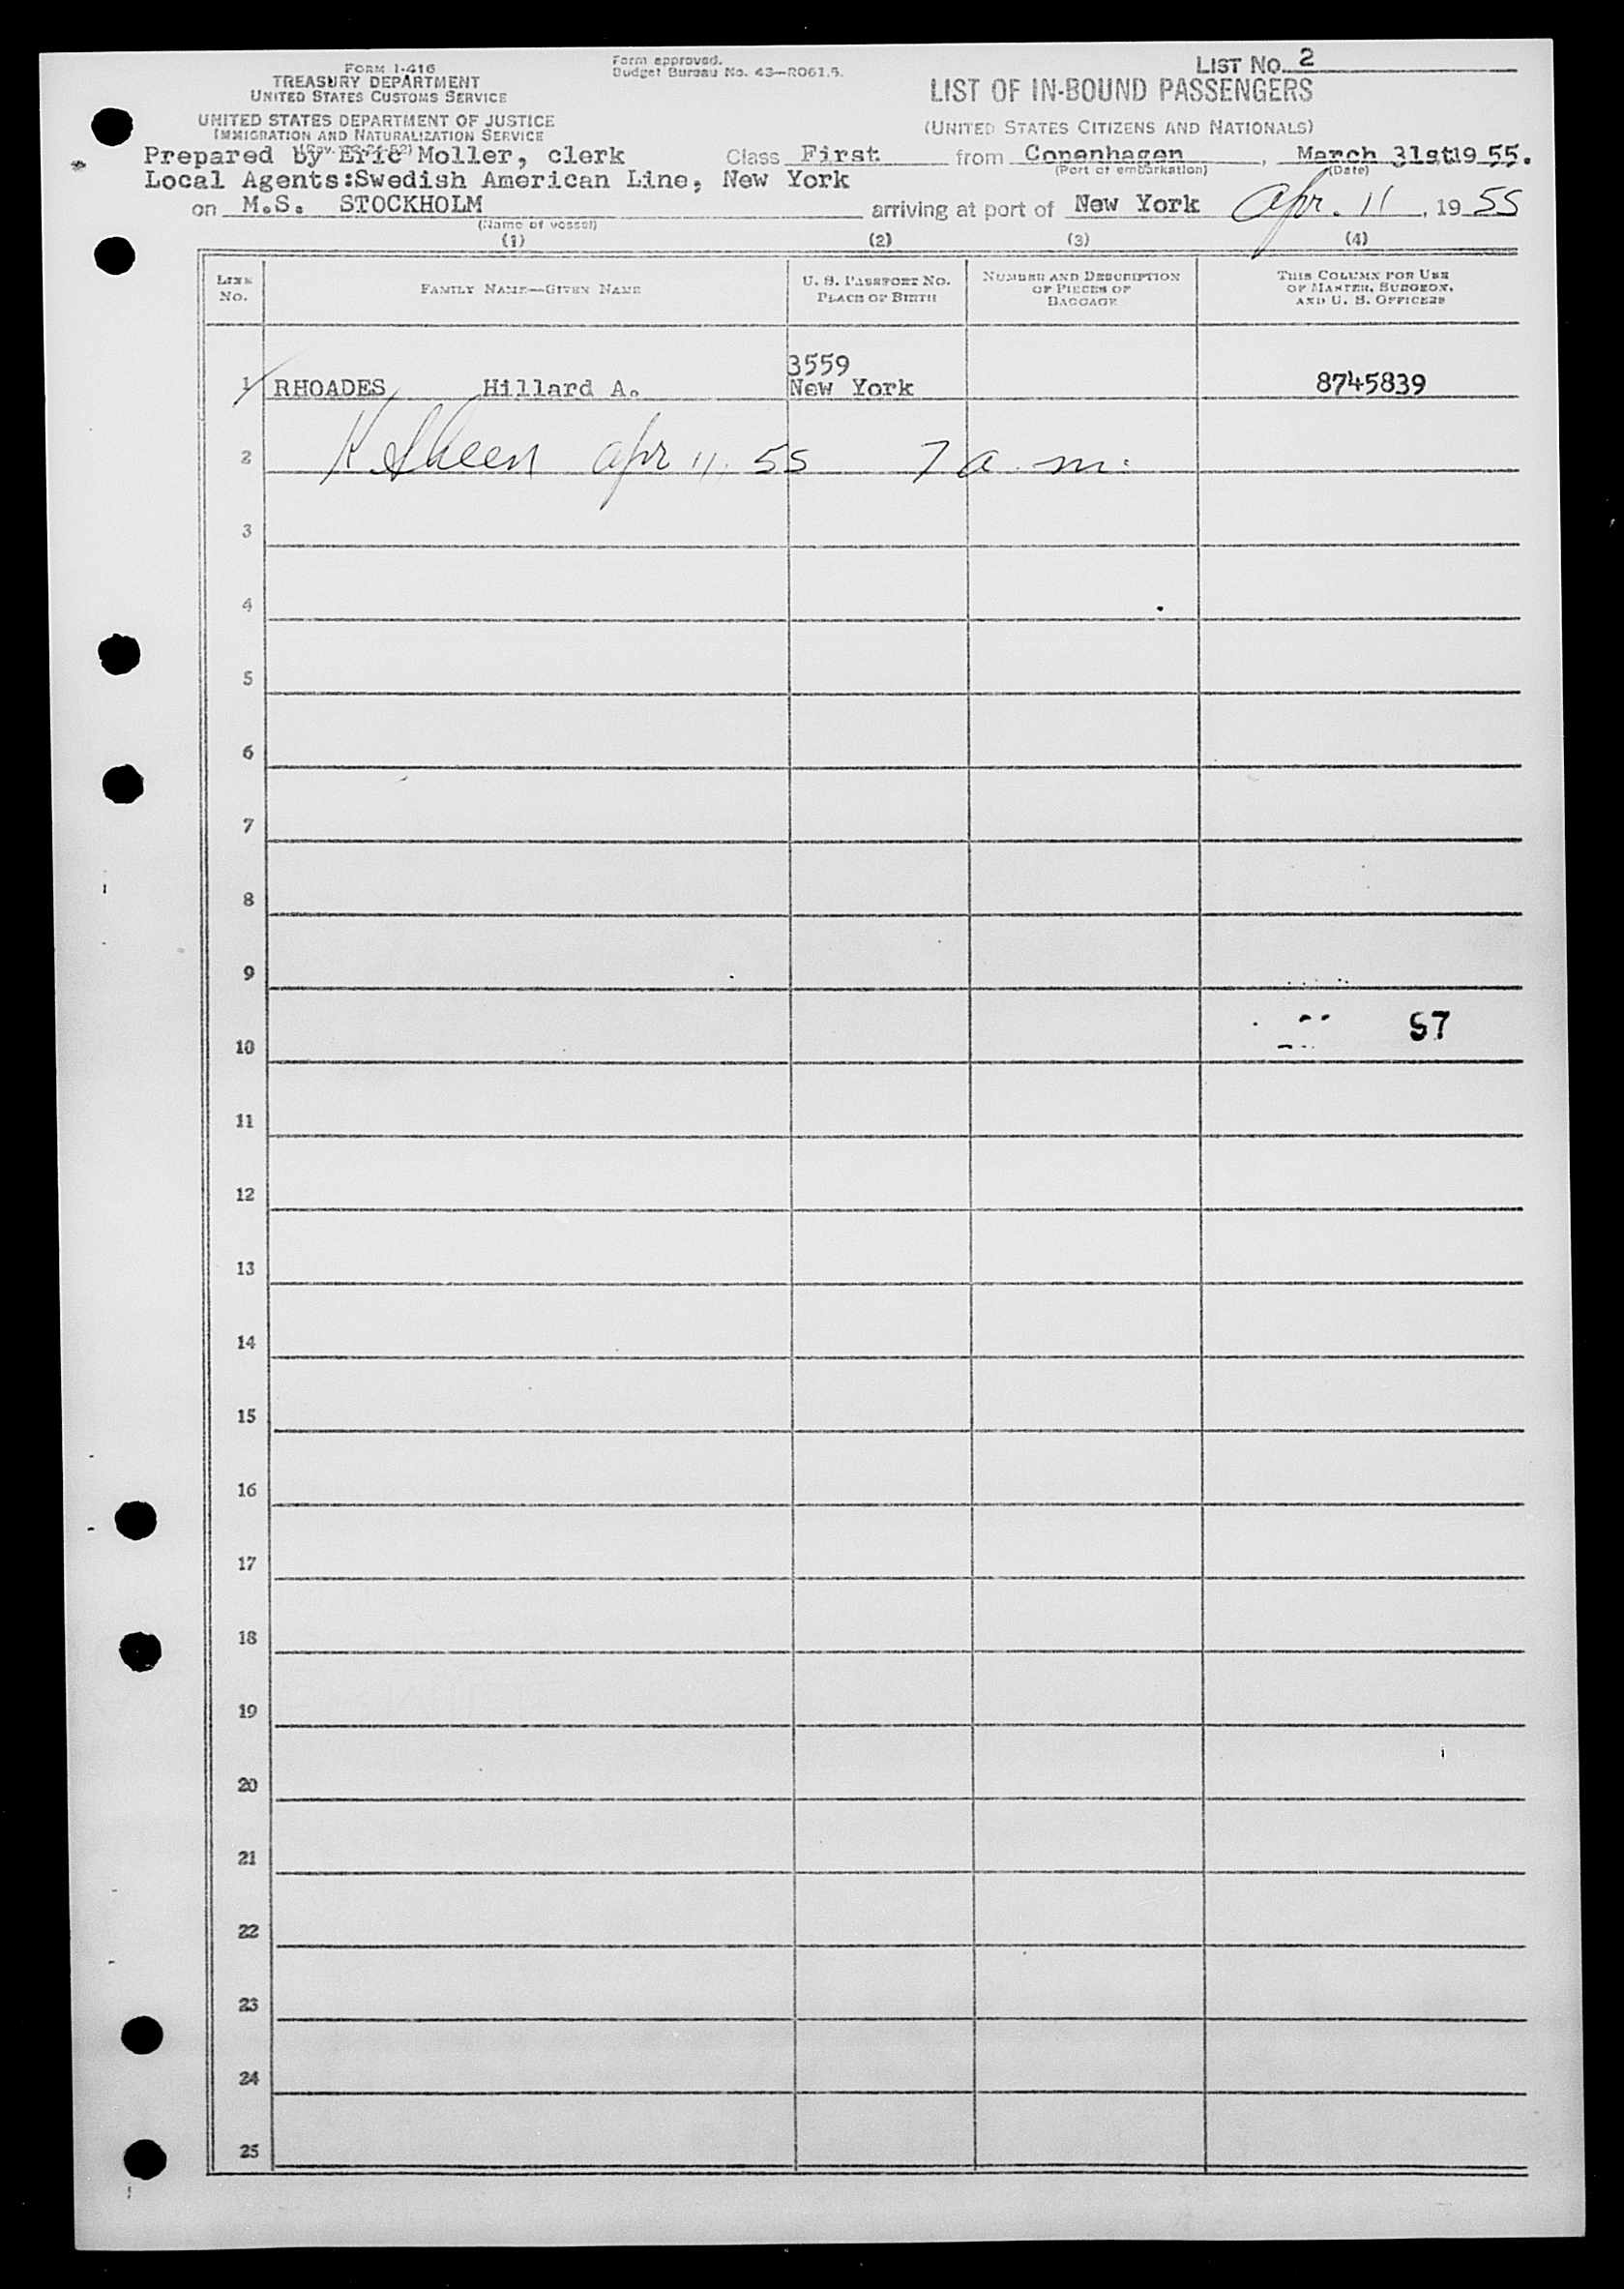 LIST No. 2
FORM I-416
TREASURY DEPARTMENT
UNITED STATES CUSTOMS SERVICE
Form approved.
Budget Bureau No. 43—R061.5.
LIST OF IN-BOUND PASSENGERS
UNITED STATES DEPARTMENT OF JUSTICE
IMMIGRATION AND NATURALIZATION SERVICE
(UNITED STATES CITIZENS AND NATIONALS)
Prepared by Eric Moller, clerk Class First from Copenhagen, March 31st 19 55.
(Port of embarkation) (Date)
Local Agents:Swedish American Line, New York
on M.S. STOCKHOLM arriving at port of New York Apr. 11, 19 55
(Name of vessel)
(1) (2) (3) (4)
LINE No. FAMILY NAME—GIVEN NAME U. S. PASSPORT NO. PLACE OF BIRTH NUMBER AND DESCRIPTION OF PIECES OF BAGGAGE THIS COLUMN FOR USE OF MASTER, SURGEON, AND U. S. OFFICERS
3559
1 RHOADES Hillard A. New York 8745839
2 Apr 11, 55 7 a.m.
3
4
5
6
7
8
9
10 57
11
12
13
14
15
16
17
18
19
20
21
22
23
24
25